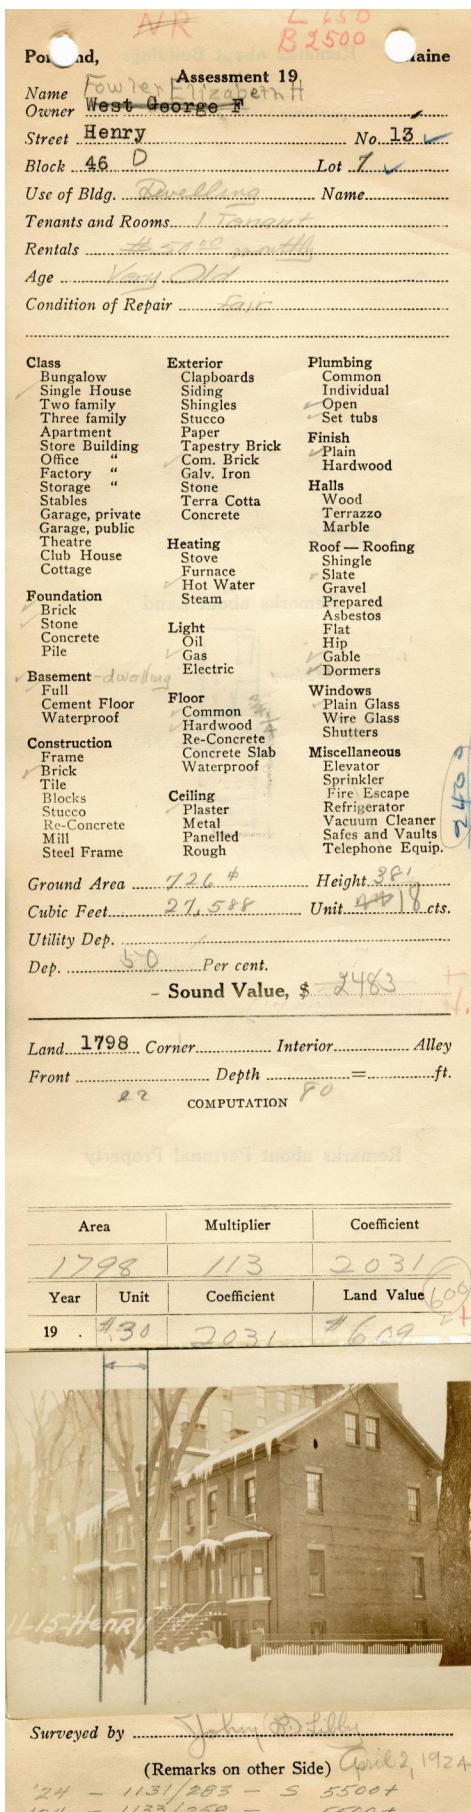 NR
L 650
B 2500
Portland, Maine
Assessment 19
Name Fowler Elizabeth H
Owner West George F
Street Henry No. 13
Block 46 D Lot 7
Use of Bldg. Dwelling Name
Tenants and Rooms 1 Tenant
Rentals $50.00 monthly
Age Very Old
Condition of Repair Fair
Class
Bungalow
Single House
Two family
Three family
Apartment
Store Building
Office "
Factory "
Storage "
Stables
Garage, private
Garage, public
Theatre
Club House
Cottage
Foundation
Brick
Stone
Concrete
Pile
Basement - dwelling
Full
Cement Floor
Waterproof
Construction
Frame
Brick
Tile
Blocks
Stucco
Re-Concrete
Mill
Steel Frame
Exterior
Clapboards
Siding
Shingles
Stucco
Paper
Tapestry Brick
Com. Brick
Galv. Iron
Stone
Terra Cotta
Concrete
Heating
Stove
Furnace
Hot Water
Steam
Light
Oil
Gas
Electric
Floor
Common
Hardwood
Re-Concrete
Concrete Slab
Waterproof
Ceiling
Plaster
Metal
Panelled
Rough
Plumbing
Common
Individual
Open
Set tubs
Finish
Plain
Hardwood
Halls
Wood
Terrazzo
Marble
Roof — Roofing
Shingle
Slate
Gravel
Prepared
Asbestos
Flat
Hip
Gable
Dormers
Windows
Plain Glass
Wire Glass
Shutters
Miscellaneous
Elevator
Sprinkler
Fire Escape
Refrigerator
Vacuum Cleaner
Safes and Vaults
Telephone Equip.
2400
Ground Area 726 Height 38'
Cubic Feet 27,588 Unit 18 cts.
Utility Dep.
Dep. 50 Per cent.
- Sound Value, $ 2483
Land 1798 Corner Interior Alley
Front Depth = ft.
22 COMPUTATION 80
Area Multiplier Coefficient
1798 113 2031
Year Unit Coefficient Land Value
600
19 . $.30 2031 $609
11-15-Henry
Surveyed by John R. Libby
(Remarks on other Side) April 2, 1924
'24 - 1131/283 - S 5500+